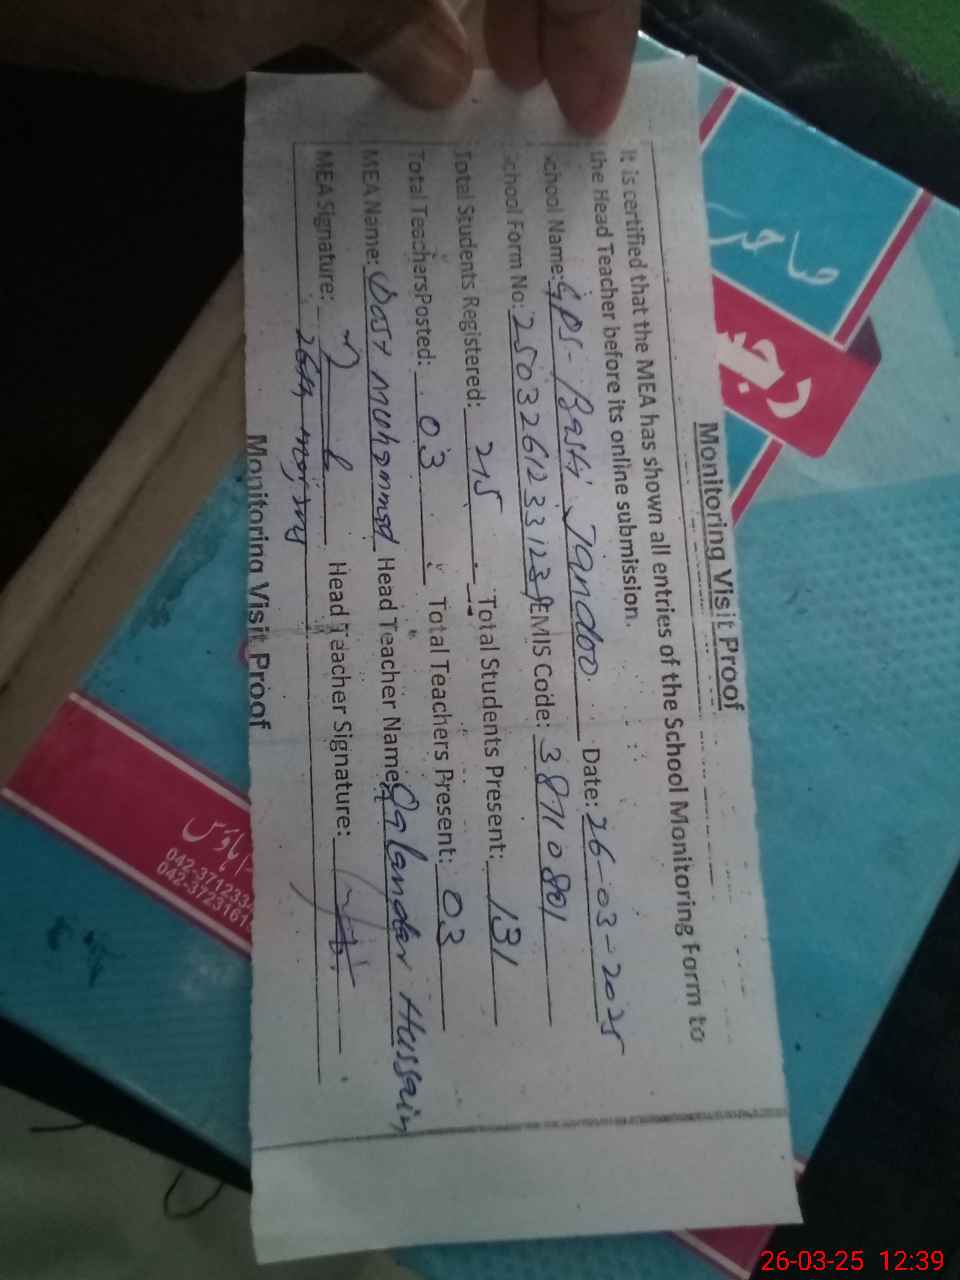 Monitoring Visit Proof
It is certified that the MEA has shown all entries of the School Monitoring Form to
the Head Teacher before its online submission.
School Name: GPS- Basti Jandoo Date: 26-03-2025
School Form No: 250326123312 EMIS Code: 38710801
Total Students Registered: 215 Total Students Present: 131
Total TeachersPosted: 03 Total Teachers Present: 03
MEA Name: Dost Muhammad Head Teacher Name: Qalandar Hussain
MEA Signature: Head Teacher Signature:
Monitoring Visit Proof
صاحب
042-371233
042-372316
26-03-25 12:39